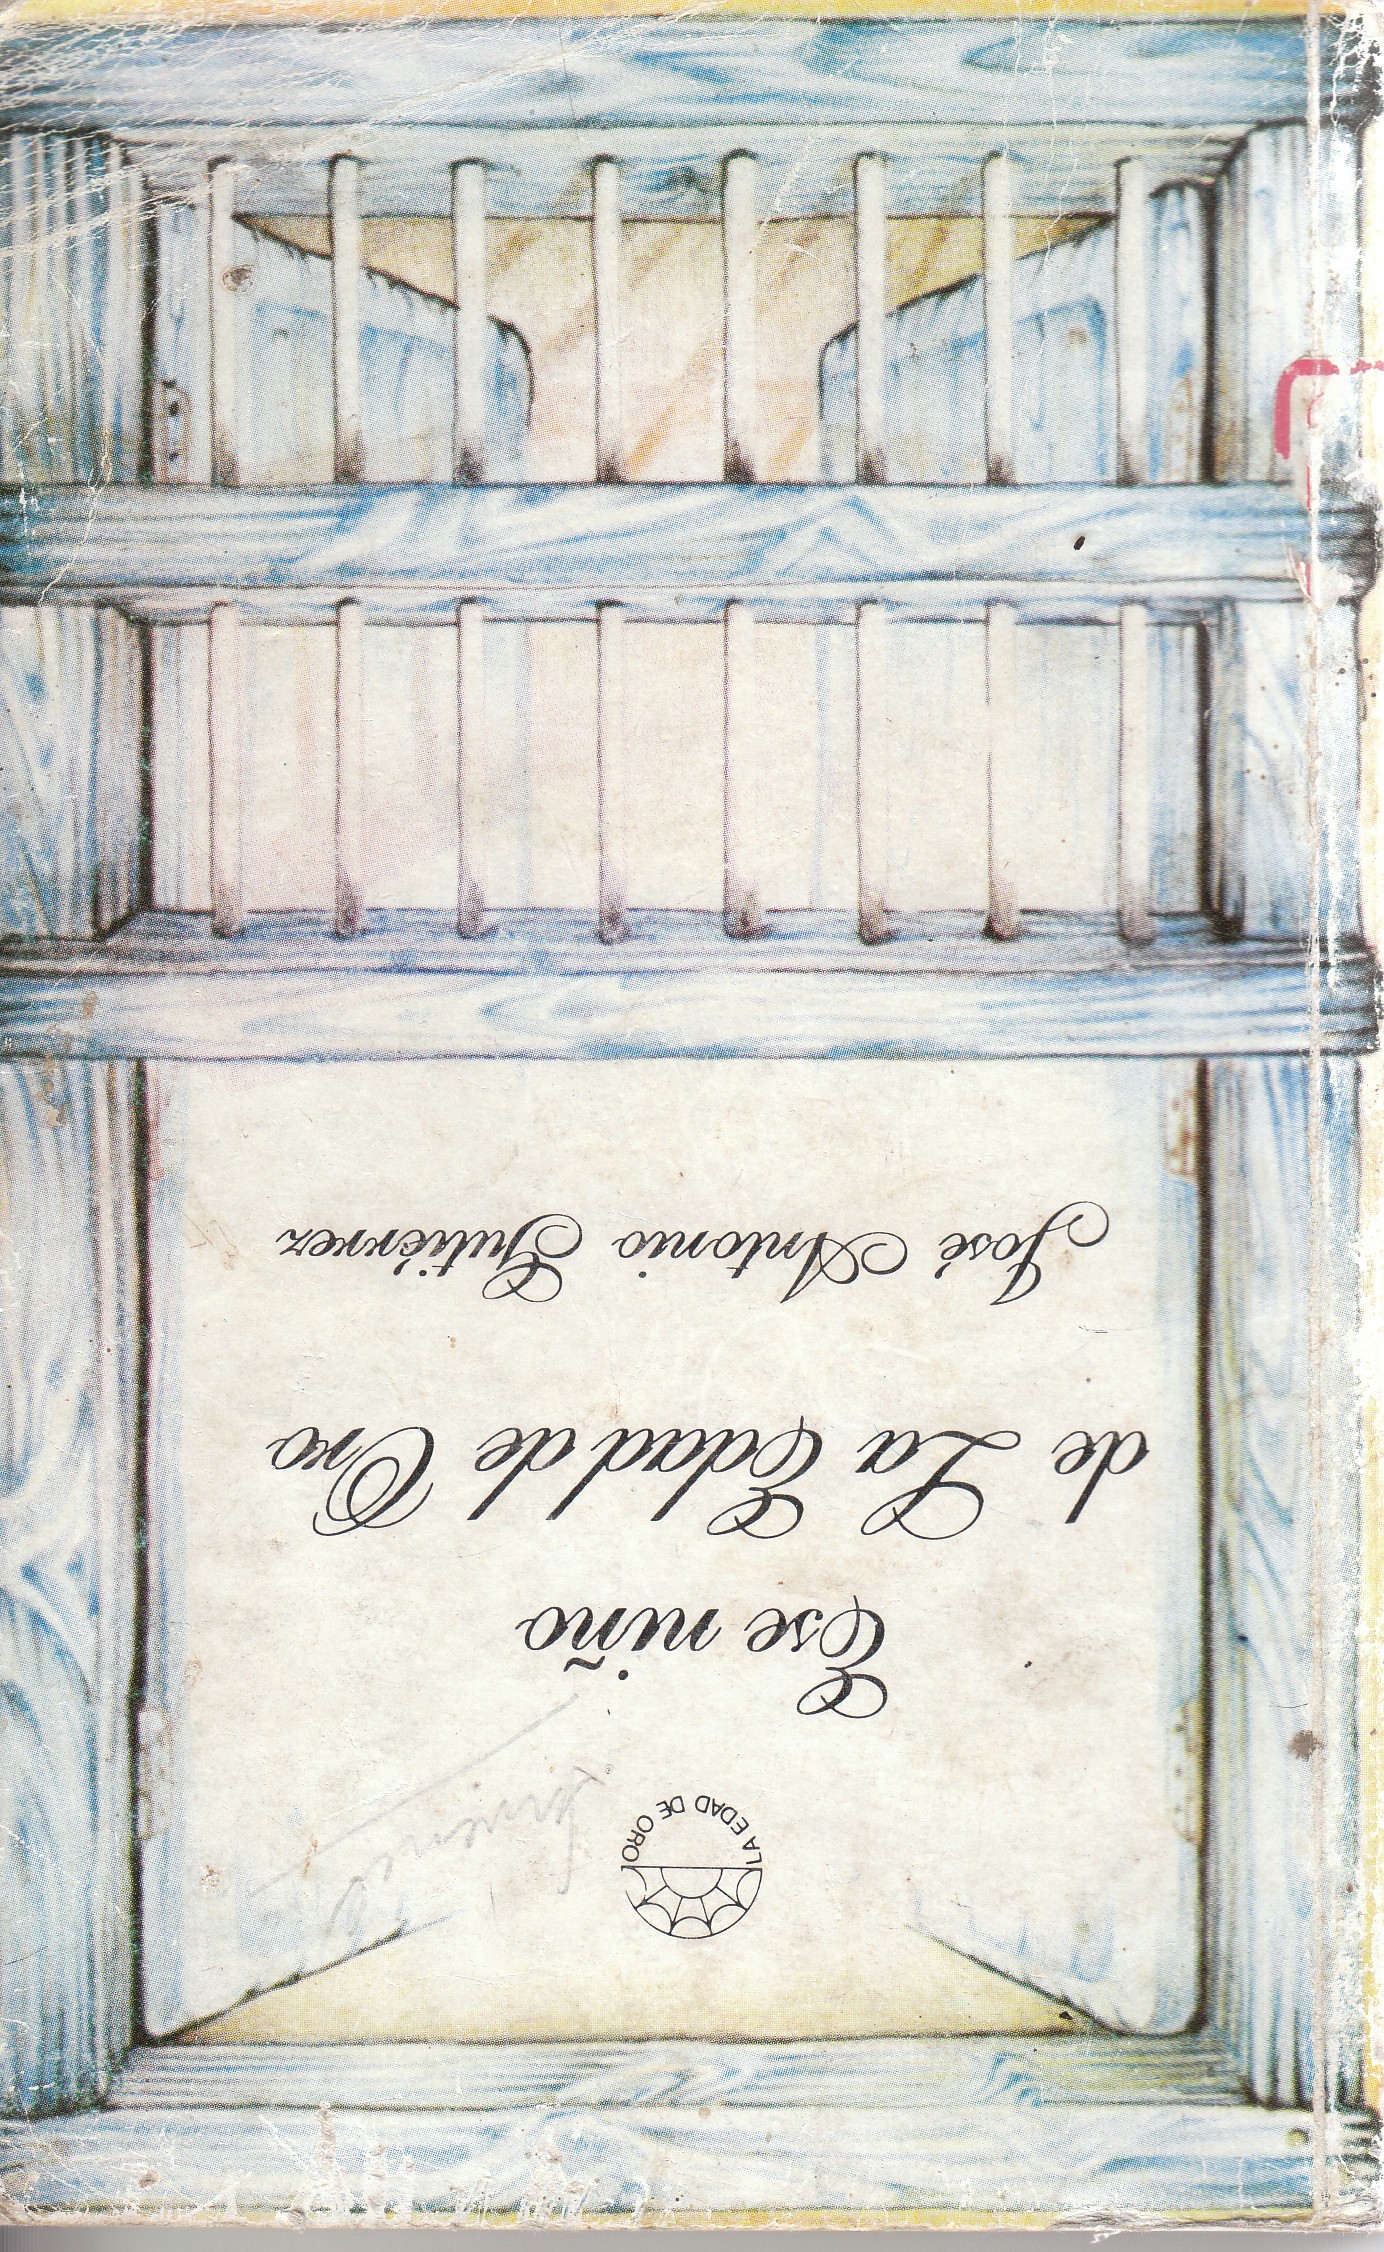 LA EDAD DE ORO
Ese niño
de La Edad de Oro
José Antonio Gutiérrez